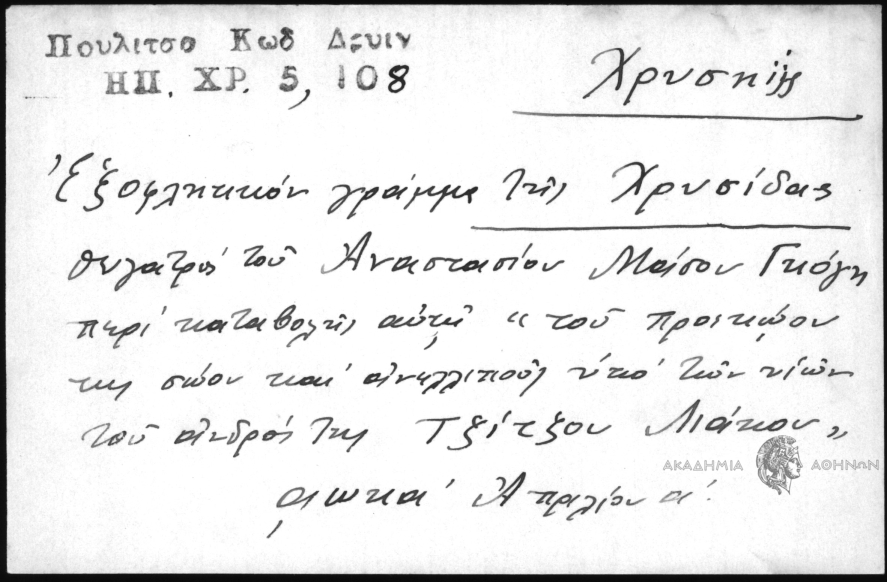 Πουλιτσα Κωδ Δρυιν
ΗΠ. ΧΡ. 5, 108
Χρυσηΐς
Ἐξοφλητικόν γράμμα τῆς Χρυσίδας
θυγατρός τοῦ Ἀναστασίου Μάσου Γκόγκη
περί καταβολῆς αὐτῇ „ τοῦ προικῴου
της σώου καί ἀνελλιποῦς ὑπό τῶν υἱῶν
τοῦ ἀνδρός της Τζίτζου Λιάκου „
αωκα΄ Ἀπριλίου α΄.
ΑΚΑΔΗΜΙΑ ΑΘΗΝΩΝ